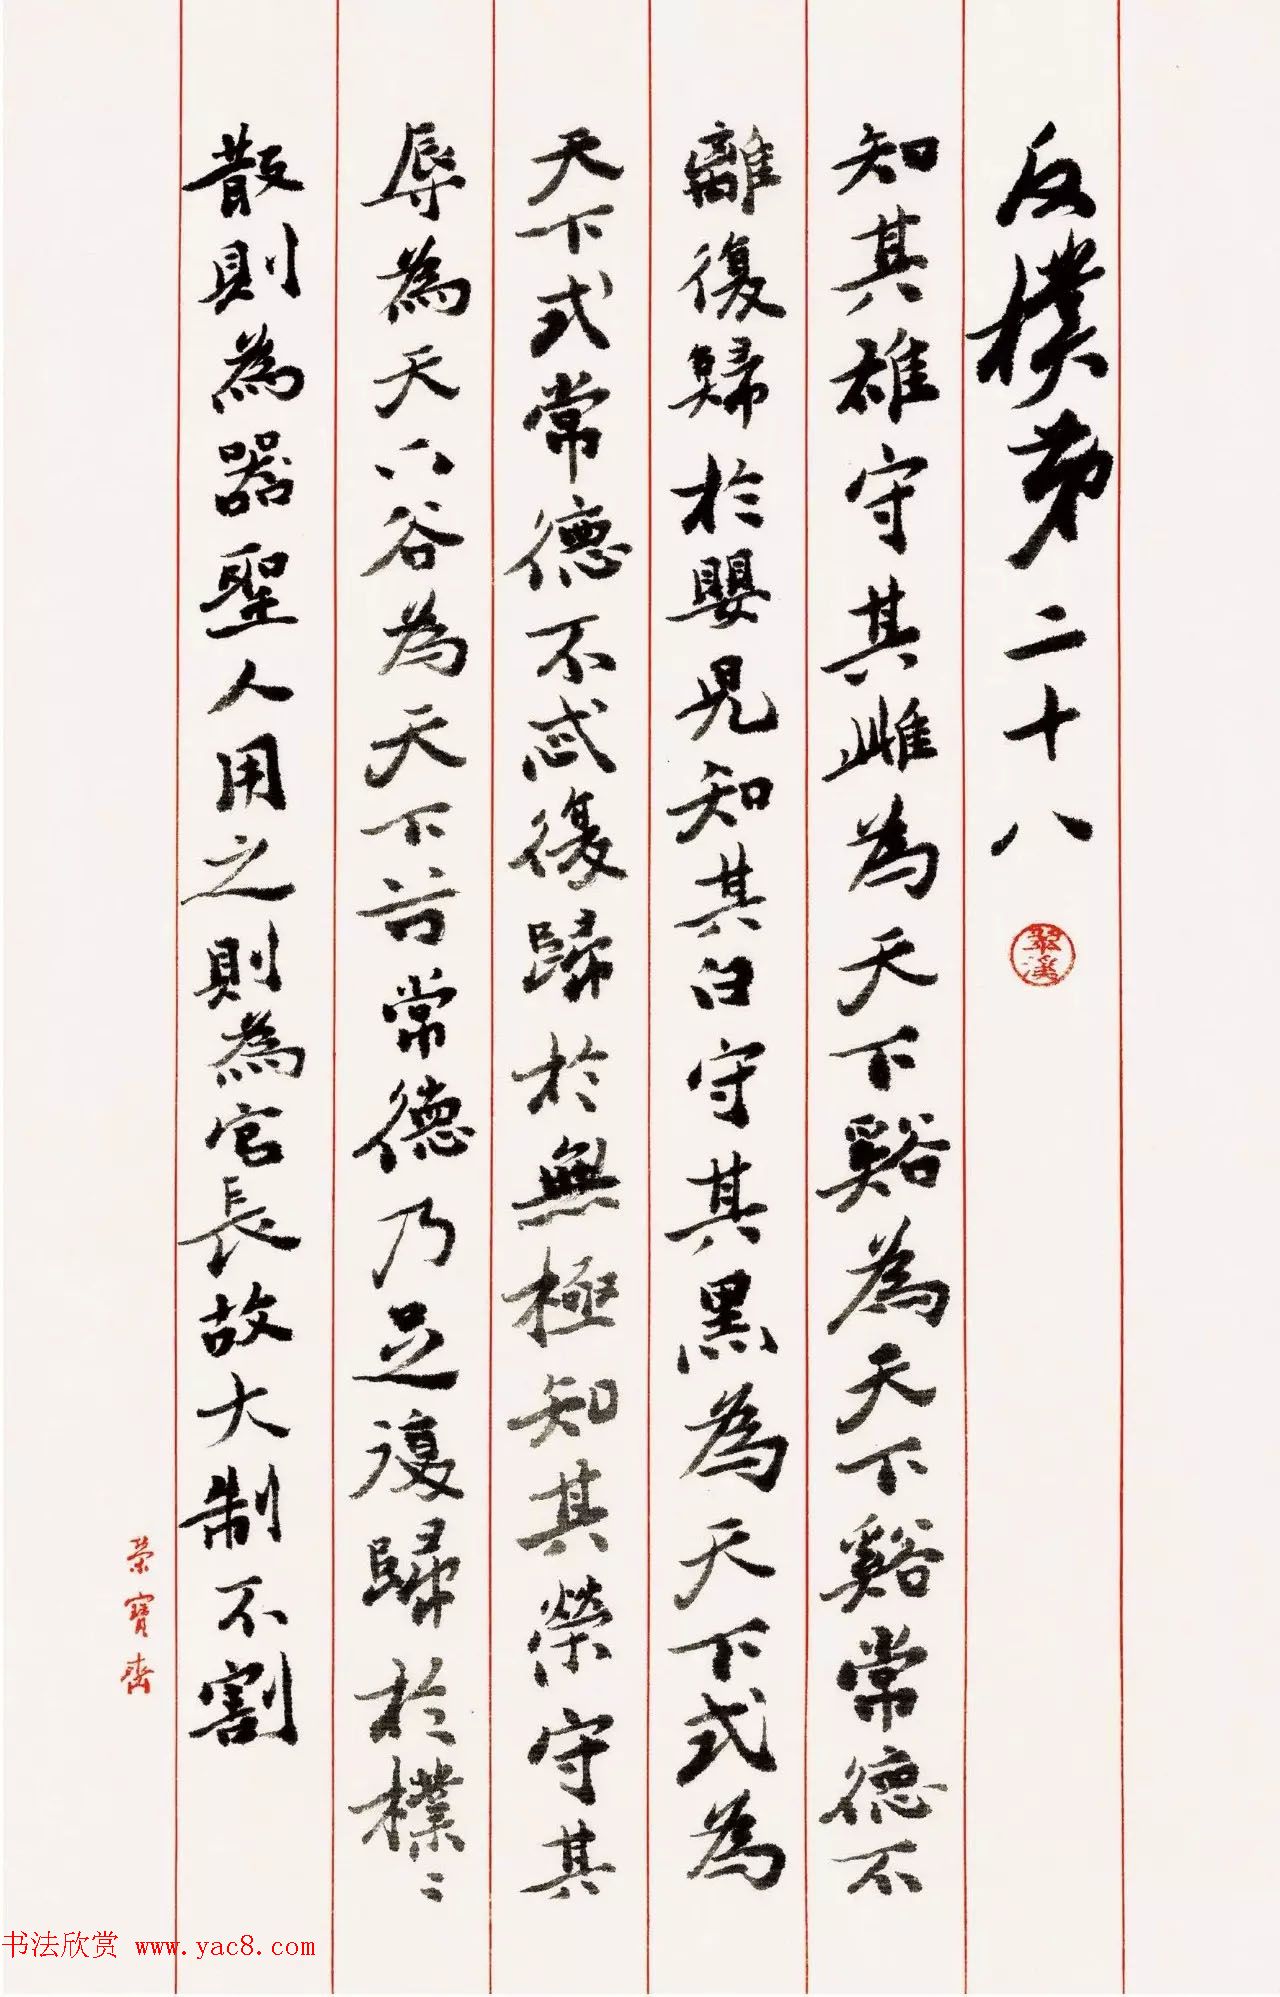 反樸第二十八
翠溪
知其雄守其雌為天下谿為天下谿常德不
離復歸於嬰兒知其白守其黑為天下式為
天下式常德不忒復歸於無極知其榮守其
辱為天下谷為天下谷常德乃足復歸於樸〻
散則為器聖人用之則為官長故大制不割
榮寶齋
书法欣赏 www.yac8.com